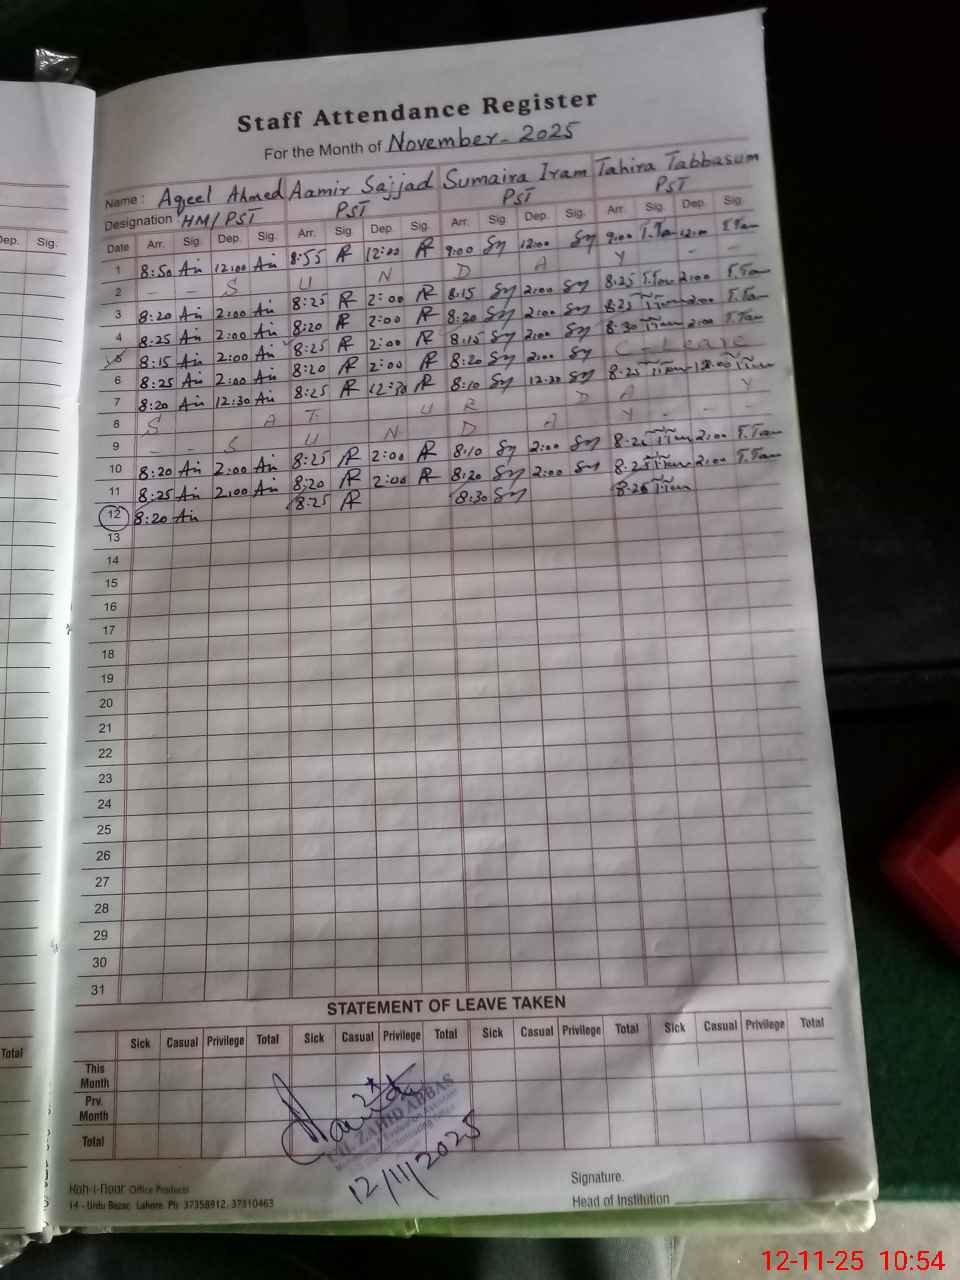 Staff Attendance Register
For the Month of November - 2025
Name: Aqeel Ahmed Aamir Sajjad Sumaira Iram Tahira Tabbasum
Designation HM/PST PST PST PST
Dep. Sig.
Date Arr. Sig. Dep. Sig. Arr. Sig. Dep. Sig. Arr. Sig. Dep. Sig. Arr. Sig. Dep. Sig.
1 8:50 12:00 8:55 12:00 9:00 12:00 9:00 T.Ta 12:00 T.Tam
2 - - S U N D A Y - -
3 8:20 2:00 8:25 2:00 8:15 2:00 8:25 T.Tam 2:00 T.Tam
4 8:25 2:00 8:20 2:00 8:20 2:00 8:25 2:00 T.Tam
5 8:15 2:00 8:25 2:00 8:15 2:00 8:30 2:00 T.Tam
6 8:25 2:00 8:20 2:00 8:20 2:00 C-Leave
7 8:20 12:30 8:25 12:30 8:10 12:30 8:25 12:00
8 S A T U R D A Y
9 - - S U N D A Y - - -
10 8:20 2:00 8:25 2:00 8:10 2:00 8:25 2:00 T.Tam
11 8:25 2:00 8:20 2:00 8:20 2:00 8:25 2:00 T.Tam
12 8:20 8:25 8:30 8:25
13
14
15
16
17
18
19
20
21
22
23
24
25
26
27
28
29
30
31
STATEMENT OF LEAVE TAKEN
Total
Sick Casual Privilege Total Sick Casual Privilege Total Sick Casual Privilege Total Sick Casual Privilege Total
This Month
Prv. Month
Total
ZAHID ABBAS
12/11/2025
Signature.
Head of Institution
Koh-i-Noor Office Products
14 - Urdu Bazar, Lahore. Ph: 37358912, 37310463
12-11-25 10:54